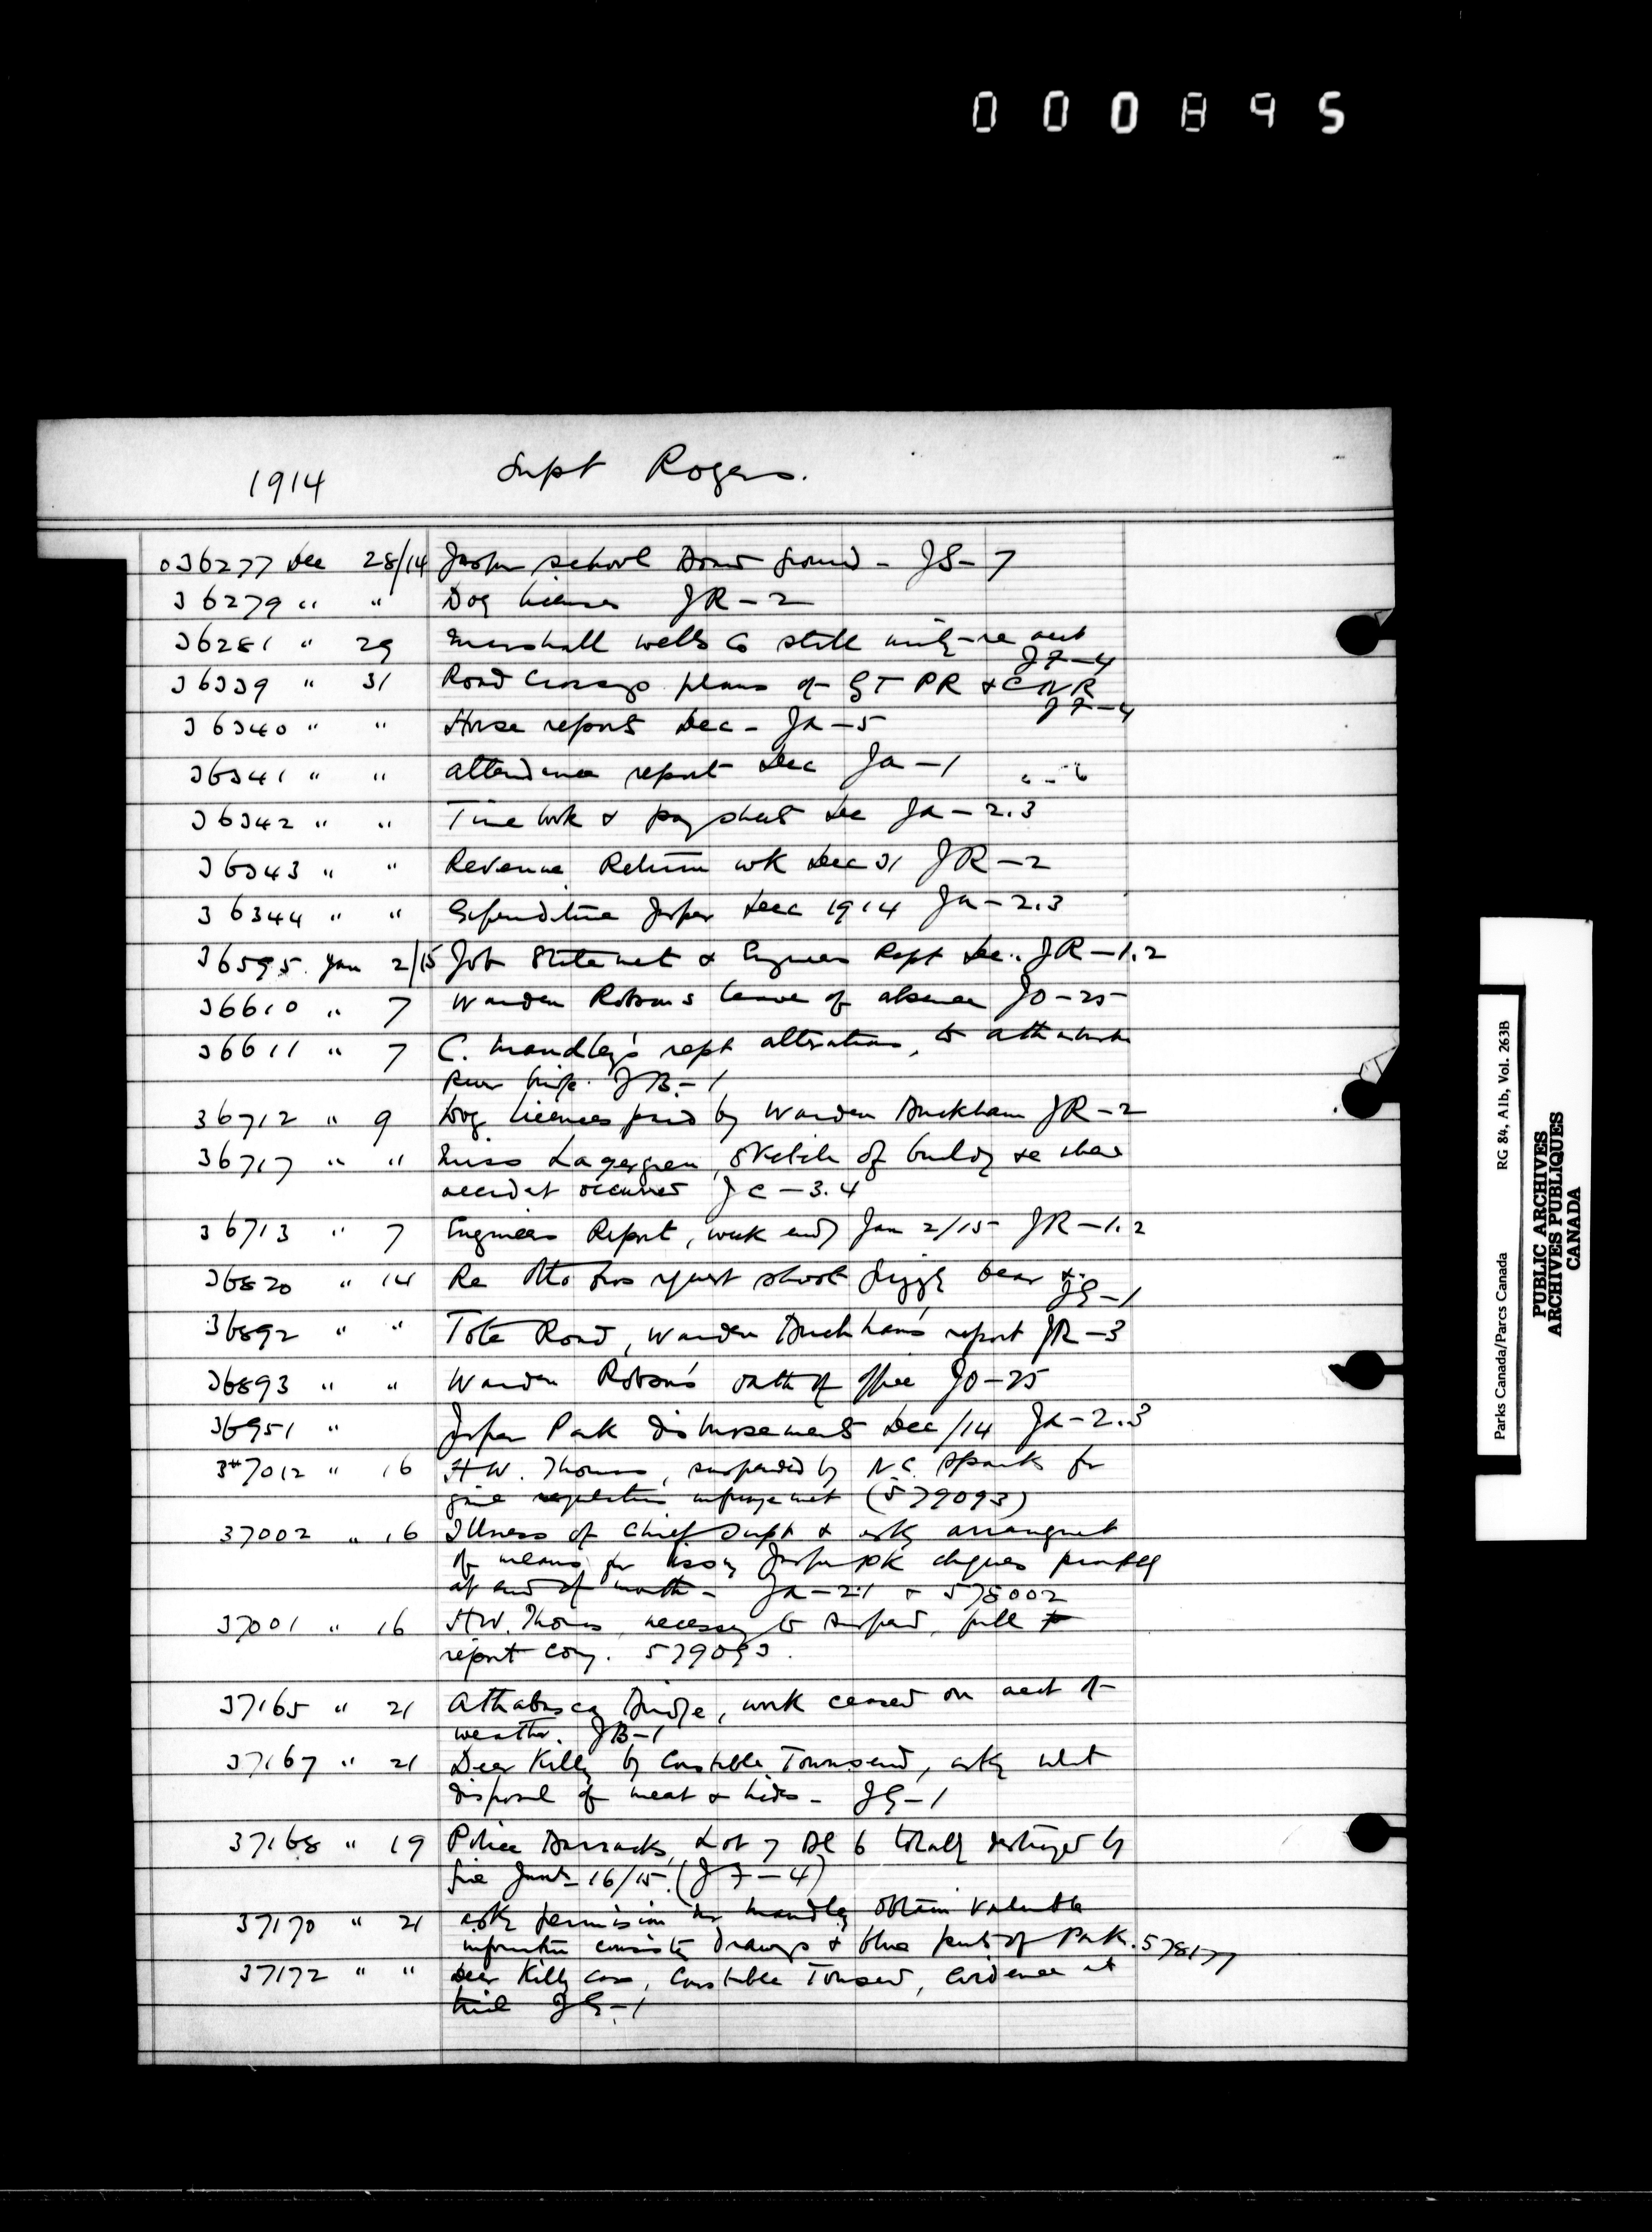 000895
1914 Supt Rogers.
036277 Dec 28/14 Jasper school ground - JS-7
36279 " " Dog licenses JR-2
36281 " 29 Marshall Wells Co still writing re acct
JF-4
36339 " 31 Road Crossings plans of GTPR & CNR
JF-4
36340 " " Horse reports Dec - Ja-5
36341 " " attendance report Dec Ja-1 " - 6
36342 " " Time bk & paysheets Dec Ja-2.3
36343 " " Revenue Return wk Dec 31 JR-2
36344 " " Expenditure Jasper Dec 1914 Ja-2.3
36595. Jan 2/15 Job Statement & Engineers Rept Dec. JR-1.2
36610 " 7 Warden Robsons leave of absence JO-25
36611 " 7 C. Mandley's rept alterations, to Athabaska
River bridge. JB-1
36712 " 9 Dog licenses paid by Warden Buckham JR-2
36717 " " Miss Lagergren, sketch of buildg &c where
accident occurred JC-3.4
36713 " 7 Engineers Report, week endg Jan 2/15 JR-1.2
36820 " 14 Re Otto Bros request shoot grizzly bear &c
JG-1
36892 " " Tote Road, Warden Buckham's report JR-3
36893 " " Warden Robson's oath of office JO-25
36951 " Jasper Park disbursements Dec/14 Ja-2.3
37012 " 16 H.W. Thomas, suspended by N.C. Sparks for
game regulations infringement (579093)
37002 " 16 Illness of Chief Supt & askg arrangmet
of means for issug Jasper pk cheques promptly
at end of month - Ja-2.1 & 578002
37001 " 16 H.W. Thomas, necessary to suspend, full
report comg. 579093.
37165 " 21 Athabasca Bridge, work ceased on acct of
weather. JB-1
37167 " 21 Deer Killg by Constable Townsend, askg what
disposal of meat & hides - JG-1
37168 " 19 Police Barracks, Lot 7 Bl 6 totally destroyed by
fire Jan 16/15. (JF-4)
37170 " 21 askg permission Mr Mandley obtain valuable
information consistg drawgs & blue prints of Park. 578177
37172 " " Deer Killg case, Constable Townsend, Evidence at
trial JG-1
Parks Canada/Parcs Canada RG 84, A1b, Vol. 263B
PUBLIC ARCHIVES
ARCHIVES PUBLIQUES
CANADA